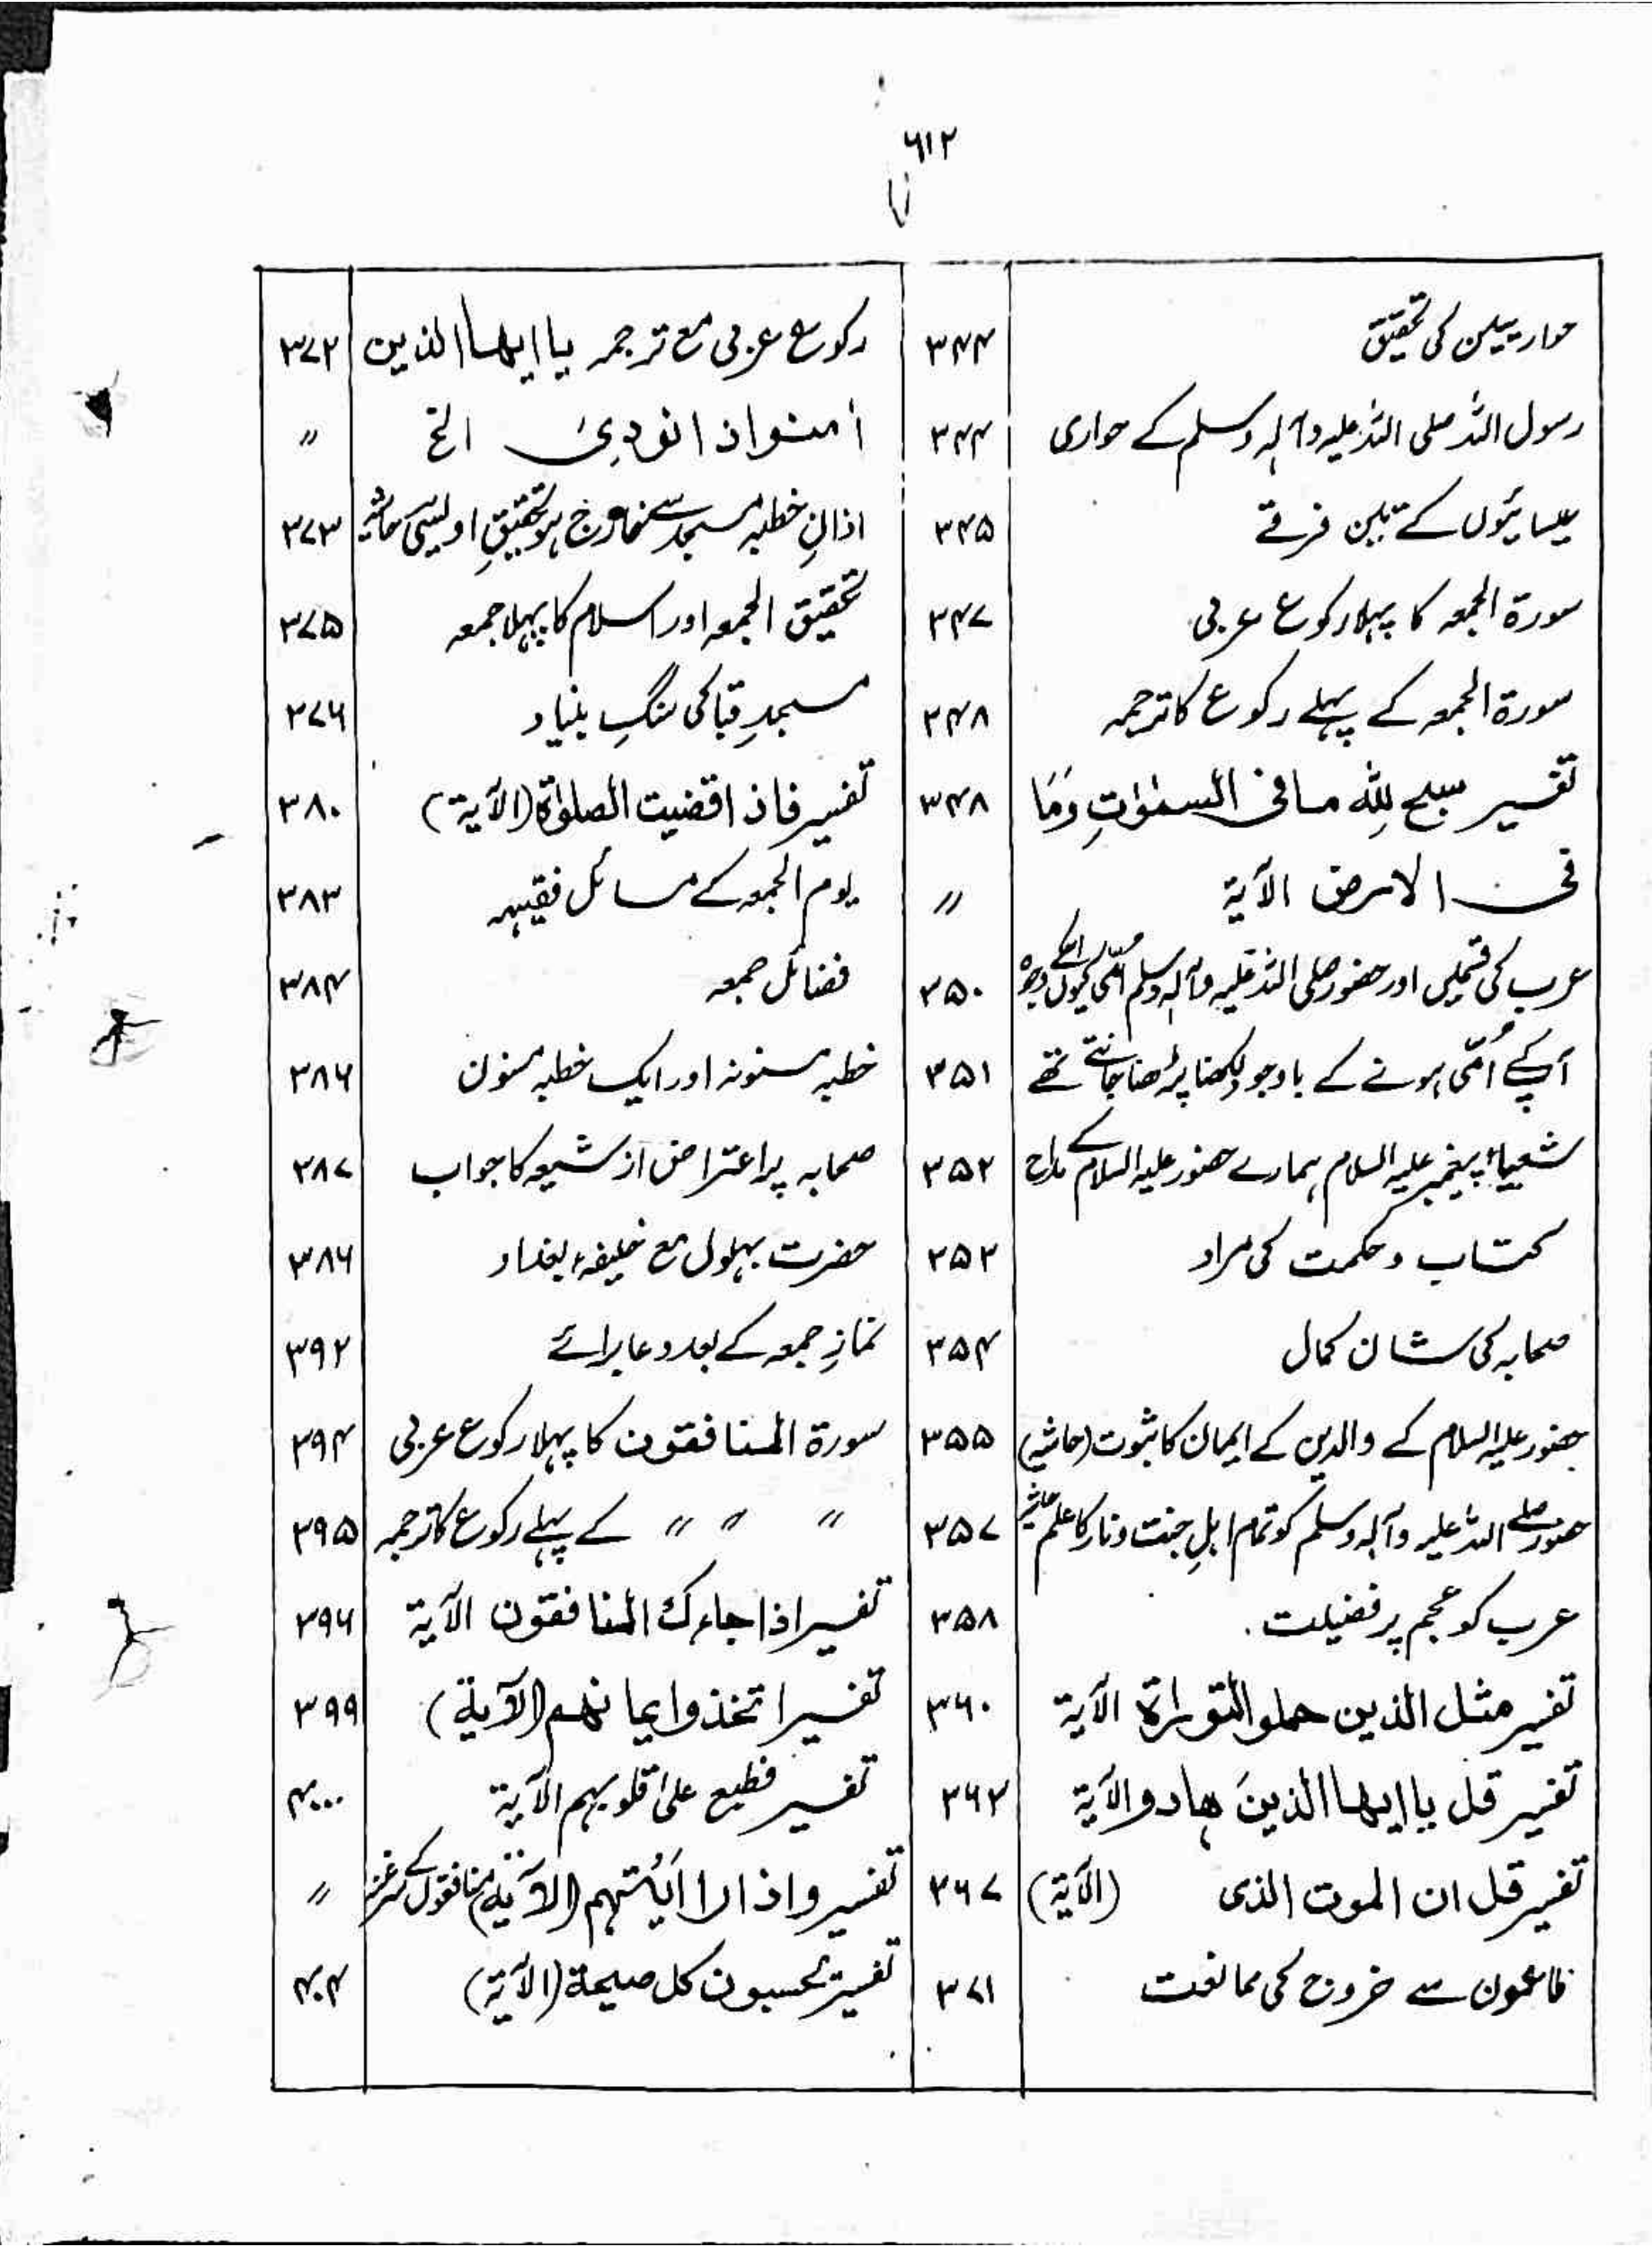 ۶۱۲
حواریین کی تحقیق ۳۴۴
رسول اللہ صلی اللہ علیہ وآلہ وسلم کے حواری ۳۴۴
عیسائیوں کے تین فرقے ۳۴۵
سورۃ الجمعہ کا پہلا رکوع عربی ۳۴۷
سورۃ الجمعہ کے پہلے رکوع کا ترجمہ ۳۴۸
تفسیر سبح للہ مافی السمٰوٰتِ وَمَا ۳۴۸
فی الارض الآیۃ ״
عرب کی اور حضور صلی اللہ علیہ وآلہ وسلم اُمّی کیوں ۳۵۰
آپکے اُمّی ہونے کے باوجود لکھنا پڑھنا جانتے تھے ۳۵۱
شعیاء پیغمبر علیہ السلام ہمارے حضور علیہ السلام کے مداح ۳۵۲
کتاب و حکمت کی مراد ۳۵۳
صحابہ کی شان کمال ۳۵۴
حضور علیہ السلام کے والدین کے ایمان کا ثبوت (حاشیہ) ۳۵۵
حضور صلے اللہ علیہ وآلہ وسلم کو تمام اہلِ جنت و نار کا علم حاشیہ ۳۵۷
عرب کو عجم پر فضیلت ۔ ۳۵۸
تفسیر مثل الذین حملو التوراۃ الآیۃ ۳۶۰
تفسیر قل یا ایھا الذینَ ھادو الآیۃ ۳۶۳
تفسیر قل ان الموت الذی (الآیۃ) ۳۶۷
طاعون سے خروج کی ممانعت ۳۷۱
رکوع عربی مع ترجمہ یا ایھا الذین ۳۷۲
اٰمنوا اذا نودِیَ الخ ״
اذانِ خطبہ مسجد سے خارج ہو تحقیقِ اویسی حاشیہ ۳۷۳
تحقیق الجمعہ اور اسلام کا پہلا جمعہ ۳۷۵
مسجدِ قبا کی سنگِ بنیاد ۳۷۶
تفسیر فاذا قضیت الصلوٰۃ (الآیۃ) ۳۸۰
یوم الجمعہ کے مسائل فقیہہ ۳۸۳
فضائل جمعہ ۳۸۴
خطبہ مسنونہ اور ایک خطبہ مسنون ۳۸۶
صحابہ پر اعتراض از شیعہ کا جواب ۳۸۷
حضرت بہلول مع خلیفۂ بغداد ۳۸۶
نمازِ جمعہ کے بعد دعا برائے ۳۹۲
سورۃ المنافقون کا پہلا رکوع عربی ۳۹۴
״ ״ ״ کے پہلے رکوع کا ترجمہ ۳۹۵
تفسیر اذا جاءک المنافقون الآیۃ ۳۹۶
تفسیر اتخذوا ایمانھم (الآیۃ) ۳۹۹
تفسیر فطبع علیٰ قلوبہم الآیۃ ۴۰۰
تفسیر واذا رااَیْتَہم (الآیۃ) منافقوں کے سرغنہ ״
تفسیر یحسبون کل صیحۃ (الآیۃ) ۴۰۴